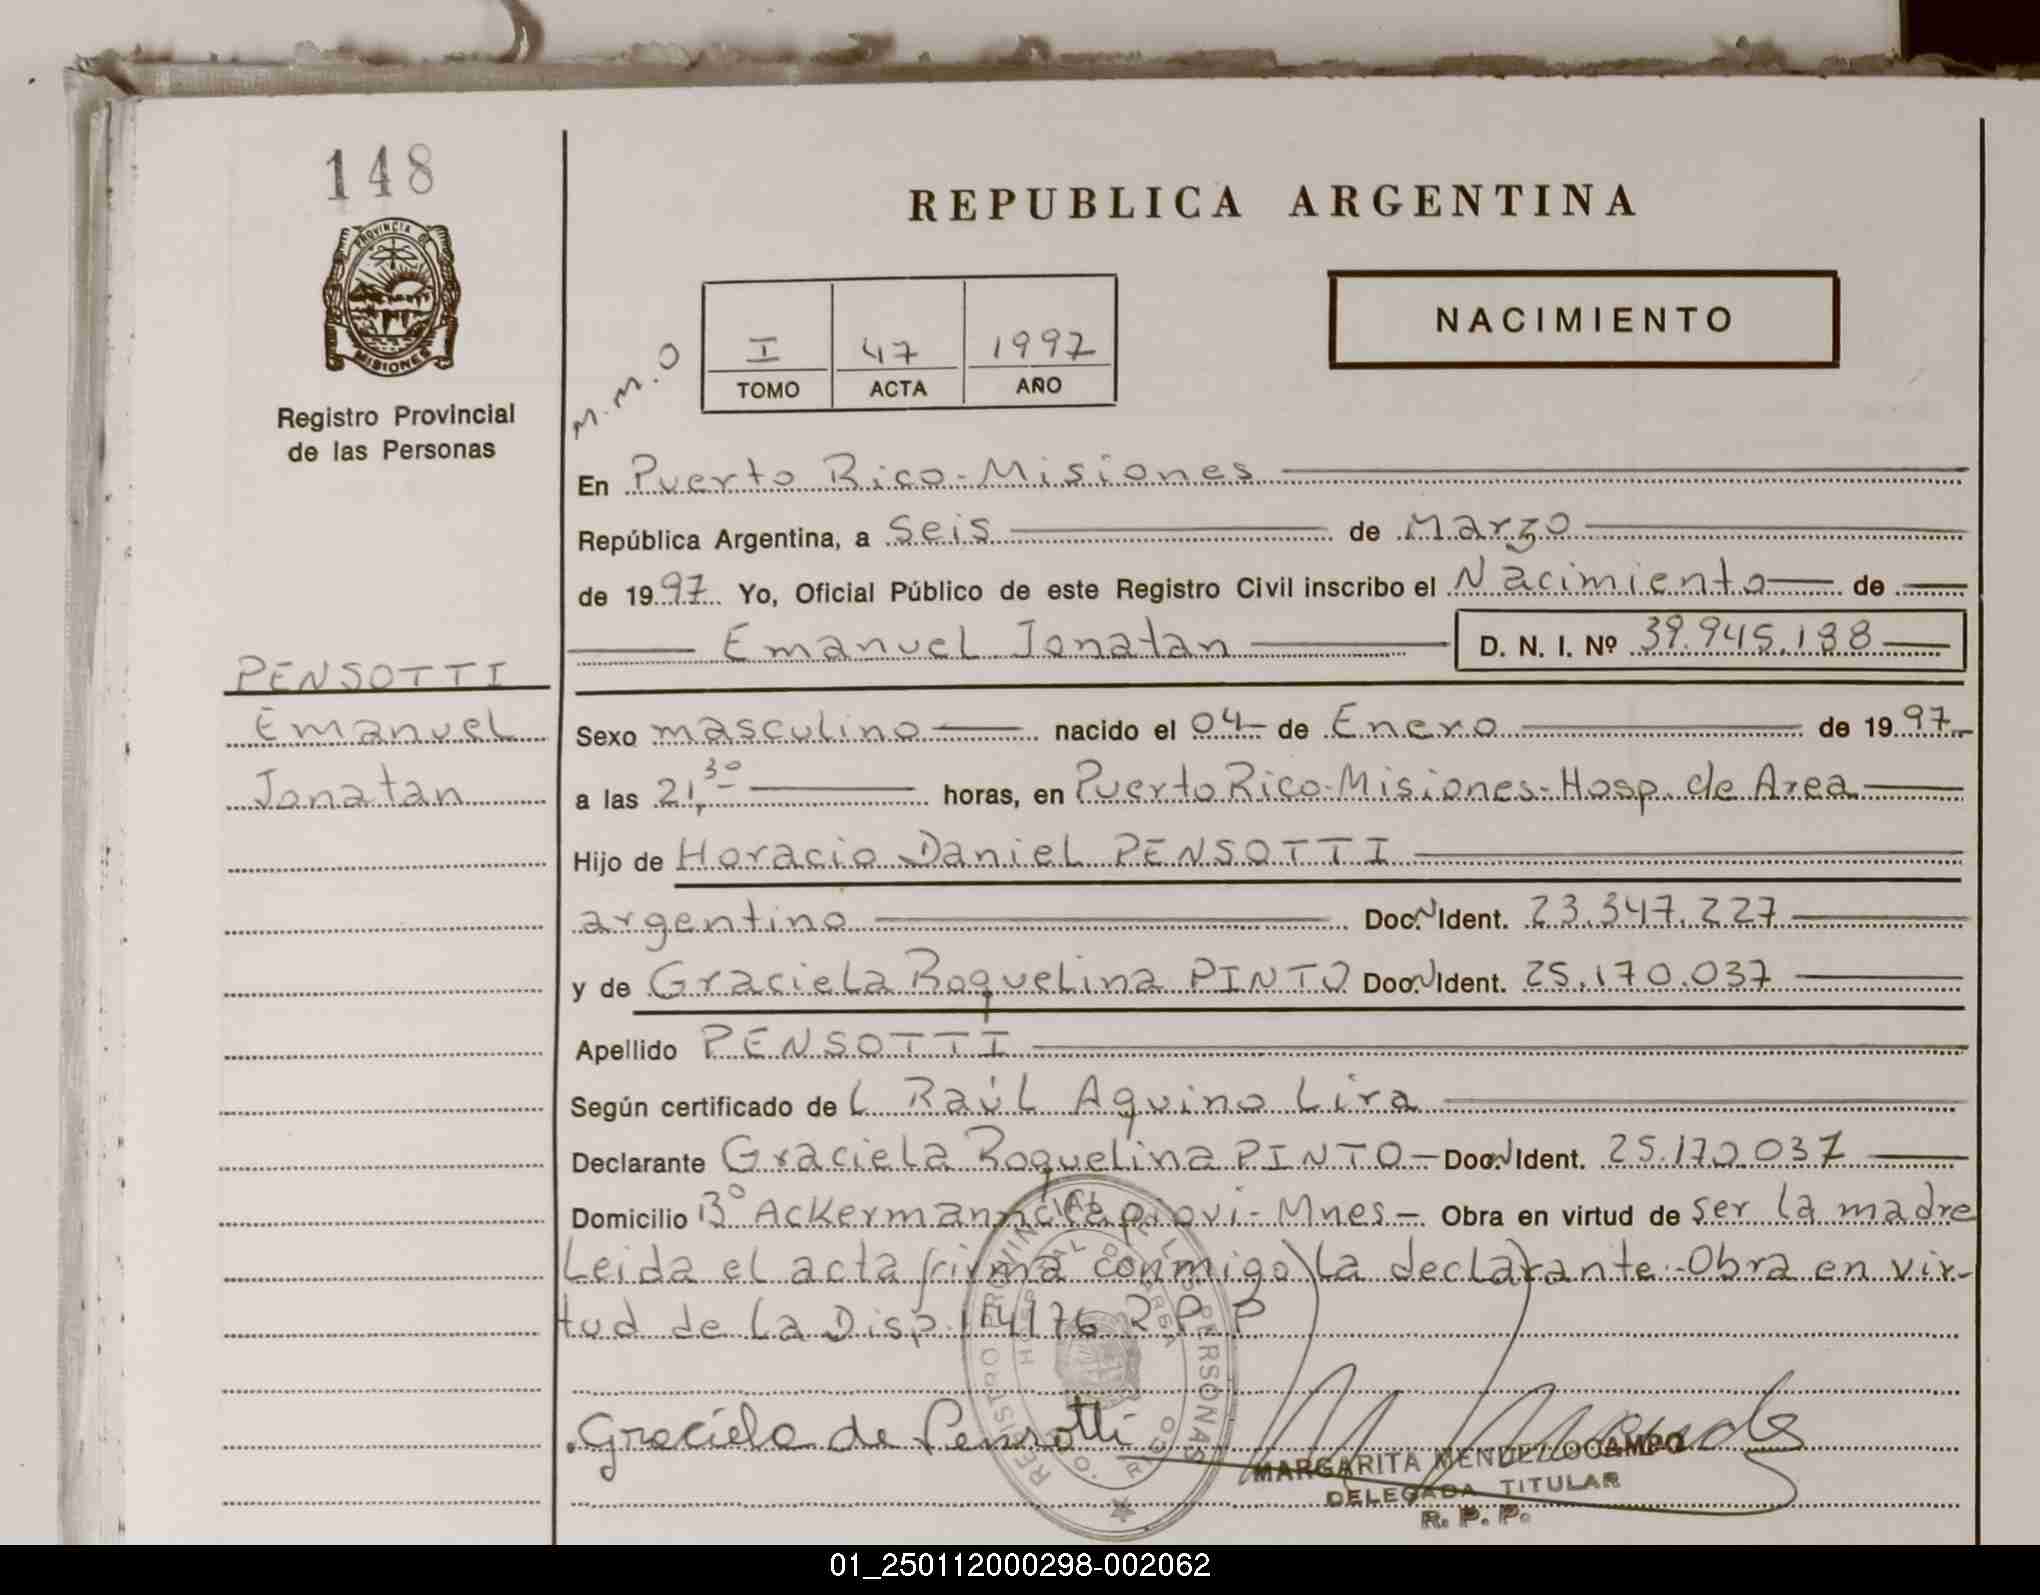 148
PROVINCIA DE
MISIONES
Registro Provincial
de las Personas
PENSOTTI
Emanuel
Jonatan
REPUBLICA ARGENTINA
NACIMIENTO
M.M.O
I 47 1997
TOMO ACTA AÑO
En Puerto Rico-Misiones
República Argentina, a Seis de Marzo
de 1997 Yo, Oficial Público de este Registro Civil inscribo el Nacimiento de
Emanuel Jonatan D. N. I. Nº 39.945.188
Sexo masculino nacido el 04 de Enero de 1997
a las 21,30 horas, en Puerto Rico-Misiones-Hosp. de Area
Hijo de Horacio Daniel PENSOTTI
argentino Doc. N Ident. 23.347.227
y de Graciela Roquelina PINTO Doc. N Ident. 25.170.037
Apellido PENSOTTI
Según certificado de L Raúl Aquino Lira
Declarante Graciela Roquelina PINTO Doc. N Ident. 25.170.037
Domicilio Bº Ackermann Mnes- Obra en virtud de ser la madre
Leida el acta firma conmigo la declarante-Obra en vir-
tud de la Disp. R.P.P
REGISTRO PROVINCIAL DE LAS PERSONAS
Graciela de Pensotti
MARGARITA MENDEZ OCAMPO
DELEGADA TITULAR
R. P. P.
01_250112000298-002062